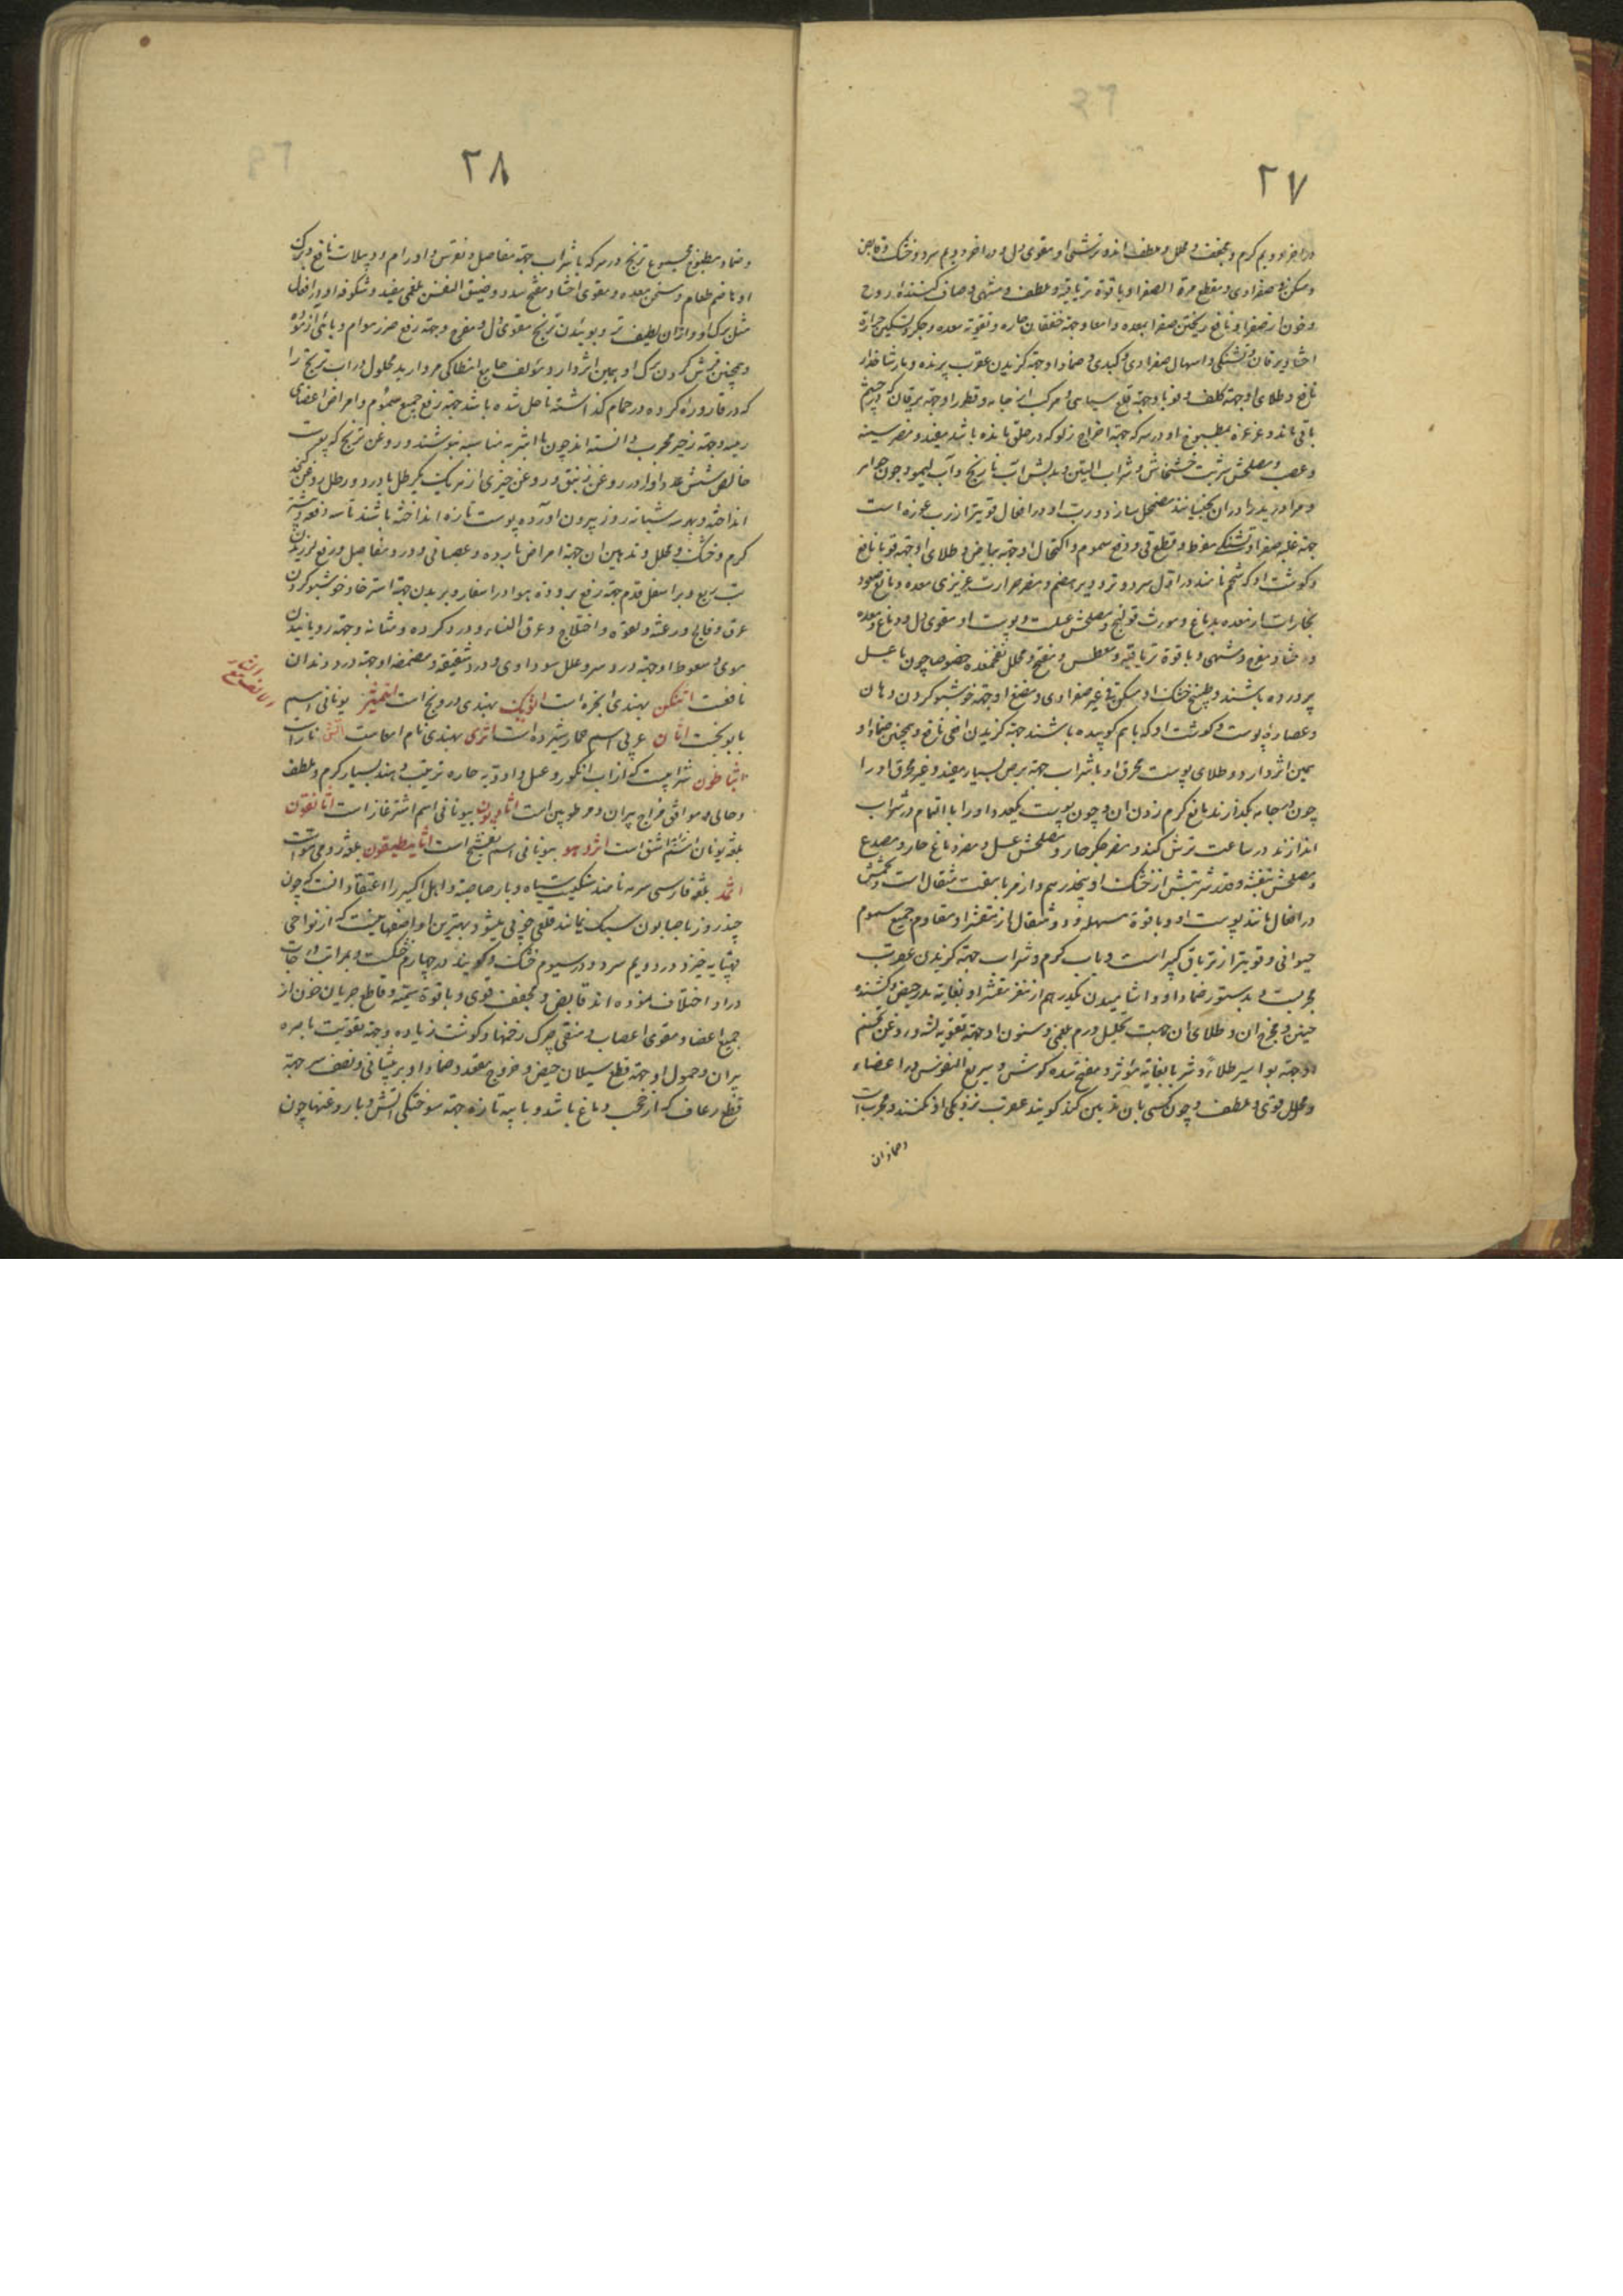 ٢٧
در آخر دویم گرم و مجفف و محلل و ملطف اند و ترشی او مقوی دل و در آخر دویم سرد و خشک و قابض
و مسکن صفراوی و مقطع مرة الصفرا و با قوة تریاقیه و ملطف و مشهی و صاف کننده روح
و خون از صفرا و نافع ریختن صفرا بمعده و امعا و جهة خفقان حاره و تقویة معده و جگر و تسکین حرارة
احشا و یرقان و تشنگی و اسهال صفراوی و کبدی و ضماد او جهة گزیدن عقرب پرنده و مار شاخدار
نافع و طلای او جهة کلف و قوبا و جهة قلع سیاهی مرکب از جامه و قطور او جهة یرقان که در چشم
باقی ماند و غرغره بمطبوخ او در سرکه جهة اخراج زلو که در حلق مانده باشد مفید و مضر سینه
و عصب و مصلحش شربت خشخاش و شراب البنفسج و بدلش آب نارنج و آب لیمو و چون جواهر
و مروارید در آن بخیسانند مضمحل سازد و رب او در افعال قویتر از رب غوره است
جهة غلبه صفرا و تشنگی مفرط و قطع قی و رفع سموم و اکتحال او جهة بیاض و طلای او جهة قوبا نافع
و گوشت او که شحم نامند در اول سرد و تر و دیر هضم و مضر حرارت غریزی معده و مانع صعود
بخارات از معده بدماغ و مورث قولنج و مصلحش عسلست و پوست او مقوی دل و دماغ و معده
و احشا و مفرح و مشهی و با قوة تریاقیه و معطس و مفتح و محلل نفخ معده خصوصا چون با عسل
پرورده باشند و طبیخ خشک او مسکن قی غیر صفراوی و مضغ او جهة خوشبو کردن دهان
و عصاره پوست و گوشت او که باهم کوبیده باشند جهة گزیدن افعی نافع و همچنین ضماد او
همین اثر دارد و طلای پوست محرق او با شراب جهة برص بسیار مفید و غیر محرق او را
چون در جامه بگذارند مانع کرم زدن آن و چون پوست یکعدد او را با التمام در شراب
اندازند در ساعت ترش کند و مضر جگر حار و مصلحش عسل و مضر دماغ حار و مصدع
و مصلحش بنفشه و قدر شربتش از خشک او پنجدرهم و از مربا هفت مثقال است و تخمش
در افعال مانند پوست او و با قوة مسهله و دو مثقال از مقشر او مقاوم جمیع سموم
حیوانی و قویتر از تریاق کبیر است و با آب گرم و شراب جهة گزیدن عقرب
مجربست و بدستور ضماد او و آشامیدن یکدرهم از مغز مقشر او بغایة مدر حیض و کشنده
جنین و مخرج آن و طلای آن جهت تحلیل ورم بلغمی و سنون او جهة تقویه لثه و روغن تخم
او جهة بواسیر طلاءً و شربا بغایة مؤثر و مفتح سده گوش و سریع النفوذ در اعضاء
و محلل قوی و ملطف و چون کسی بآن تدهین کند گویند عقرب نزدیکی او نکنند و مجربست
و ضماد آن
٢٨
و ضماد مطبوخ مجموع ترنج در سرکه یا شراب جهة مفاصل و نقرس و اورام و دبیلات نافع و برگ
او هاضم طعام و مسخن معده و مقوی احشا و مفتح سدد و ضیق النفس بلغمی مفید و شکوفه او در افعال
مثل برگ او و از آن لطیف تر و بوئیدن ترنج مقوی دل و مفرح و جهة رفع ضرر هوای وبائی آزموده
و همچنین فرش کردن برگ او همین اثر دارد و مؤلف جامع انطاکی مروارید محلول در آب ترنج را
که در قاروره کرده در حمام گذاشته تا حل شده باشد جهة رفع جمیع سموم و امراض اعضای
رئیسه و جهة زحیر مجرب دانسته اند چون با اشربه مناسبه بنوشند و روغن ترنج که پوست
خالص شش عدد او را در روغن زنبق و روغن خیری از هر یک یکرطل یا در دو رطل روغن کنجد
انداخته و بهر سه شبانه روز بیرون آورده پوست تازه انداخته باشند تا سه دفعه رسد
گرم و خشک و محلل و تدهین آن جهة امراض بارده و عصبانی و درد مفاصل و رفع لرزیدن
تب ربع و بر اسفل قدم جهة رفع برودة هوا در اسفار و بر بدن جهة استرخا و خوشبو کردن
عرق و فالج و رعشه و لقوه و اختلاج و عرق النساء و درد گرده و مثانه و جهة رویانیدن
موی و سعوط او جهة درد سر و علل سوداوی و درد شقیقه و مضمضه او جهة درد دندان
نافعست اتنکن بهندی انجره است اتونک بهندی درونج است اتمیثنر یونانی اسم
بابونجست اتان عربی اسم حمار شیرده است اتری بهندی نام اسقاست
اثباطون شرابیست که از آب انگور و عسل و ادویه حاره ترتیب دهند بسیار گرم و ملطف
و جالی و موافق مزاج پیران و مرطوبین است اثاریون بیونانی اسم اشترغاز است اثانقون
بلغة یونان اشنه اشق است اثرو هو بیونانی اسم بعشیح است اثانیطیقون بلغة رومی شوات
اثمد بلغة فارسی سرمه نامند سنگیست سیاه و بارصاصیة و اهل اکسیر را اعتقاد آنست که چون
چند روز با صابون سبک نمایند قلعی خوبی میشود و بهترین او اصفهانیست که از نواحی
قهپایه خیزد و در دویم سرد و در سیوم خشک و گویند در چهارم خشکست و در مراتب درجات
در او اختلاف نموده اند قابض و مجفف قوی و با قوة سمیه و قاطع جریان خون از
جمیع اعضا و مقوی اعصاب و منقی چرک زخمها و گوشت زیاده و جهة تقویت باصره
پیران و حمول او جهة قطع سیلان حیض و خروج مقعد و ضماد او بر پیشانی و نصف سر جهة
قطع رعاف که از حجب دماغ باشد و با پیه تازه جهة سوختگی آتش و با روغنها چون